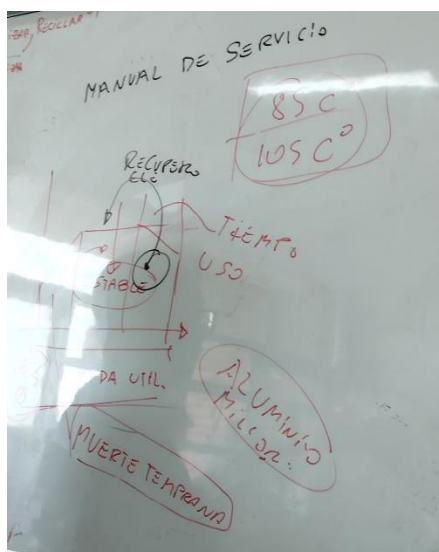 RECICLAR
MANUAL DE SERVICIO
85 C
105 C°
RECUPERO
ELE
TIEMPO
USO
STABLE
DA UTIL.
ALUMINIO
MUERTE TEMPRANA